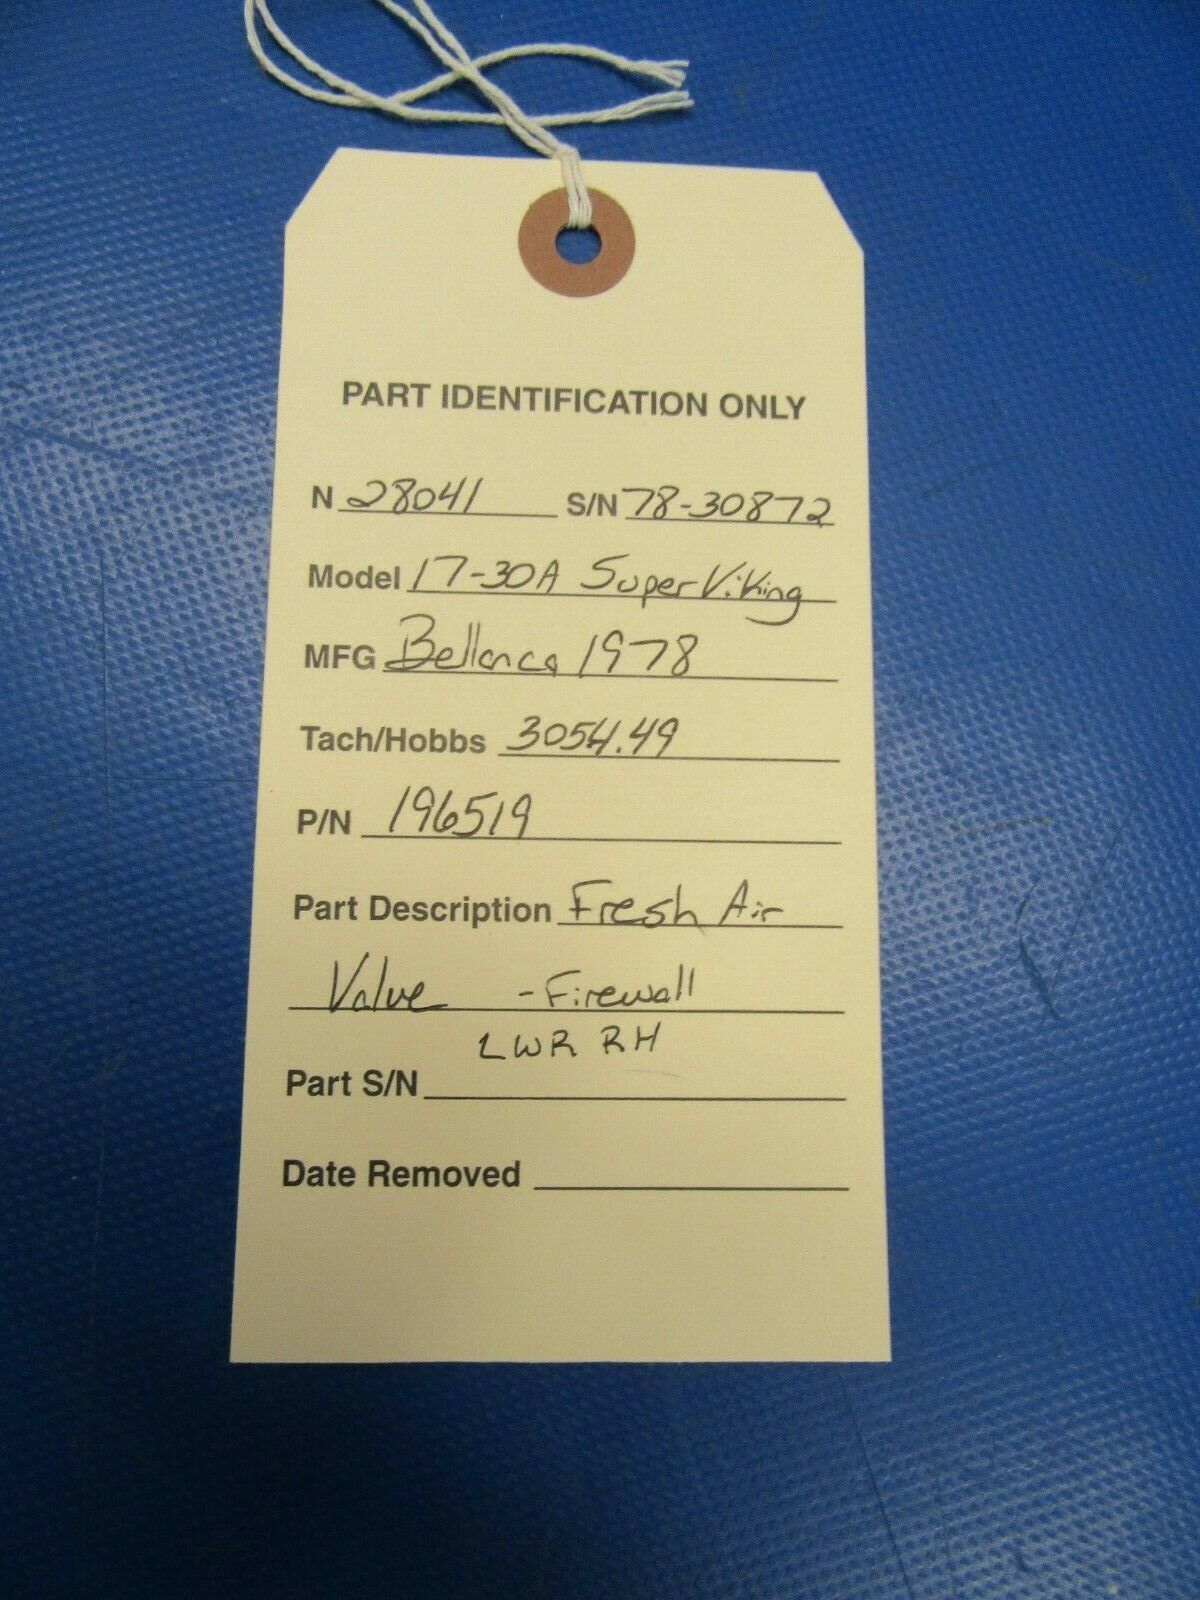 PART IDENTIFICATION ONLY
N 28041 S/N 78-30872
Model 17-30A Super Viking
MFG Bellanca 1978
Tach/Hobbs 3054.49
P/N 196519
Part Description Fresh Air
Valve - Firewall
LWR RH
Part S/N
Date Removed